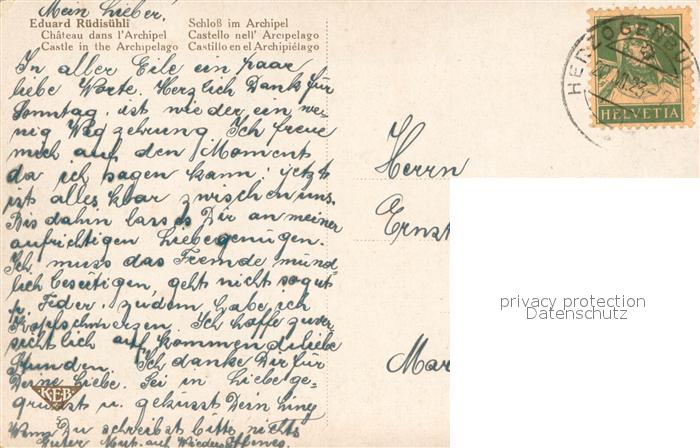 Mein Lieber!
Eduard Rüdisühli
Château dans l'Archipel
Castle in the Archipelago
Schloß im Archipel
Castello nell' Arcipelago
Castillo en el Archipiélago
In aller Eile ein paar
liebe Worte. Herzlich Dank für
Sonntag, ist wieder ein we-
nig Wegzehrung. Ich freue
mich auf den Moment
da ich sagen kann: jetzt
ist alles klar zwischen uns.
Bis dahin lass es Dir an meiner
aufrichtigen Liebe genügen.
Ich muss das Fremde münd-
lich beseitigen, geht nicht so gut
p. Feder, zudem habe ich
Kopfschmerzen. Ich hoffe zuver-
sichtlich auf kommende liebe
Stunden. Ich danke Dir für
Deine Liebe. Sei in Liebe ge-
grüsst u. geküsst Dein
Wenn Du schreibst bitte nichts
Guter Mut. auf Wieder
KEB
HERZOGENBU
HELVETIA
Herrn
Ernst
Mar
privacy protection
Datenschutz